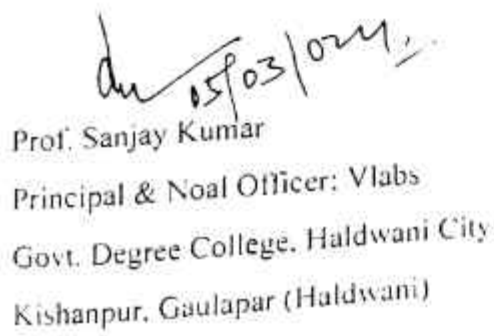 05/03/024
Prof. Sanjay Kumar
Principal & Noal Officer: Vlabs
Govt. Degree College, Haldwani City
Kishanpur, Gaulapar (Haldwani)